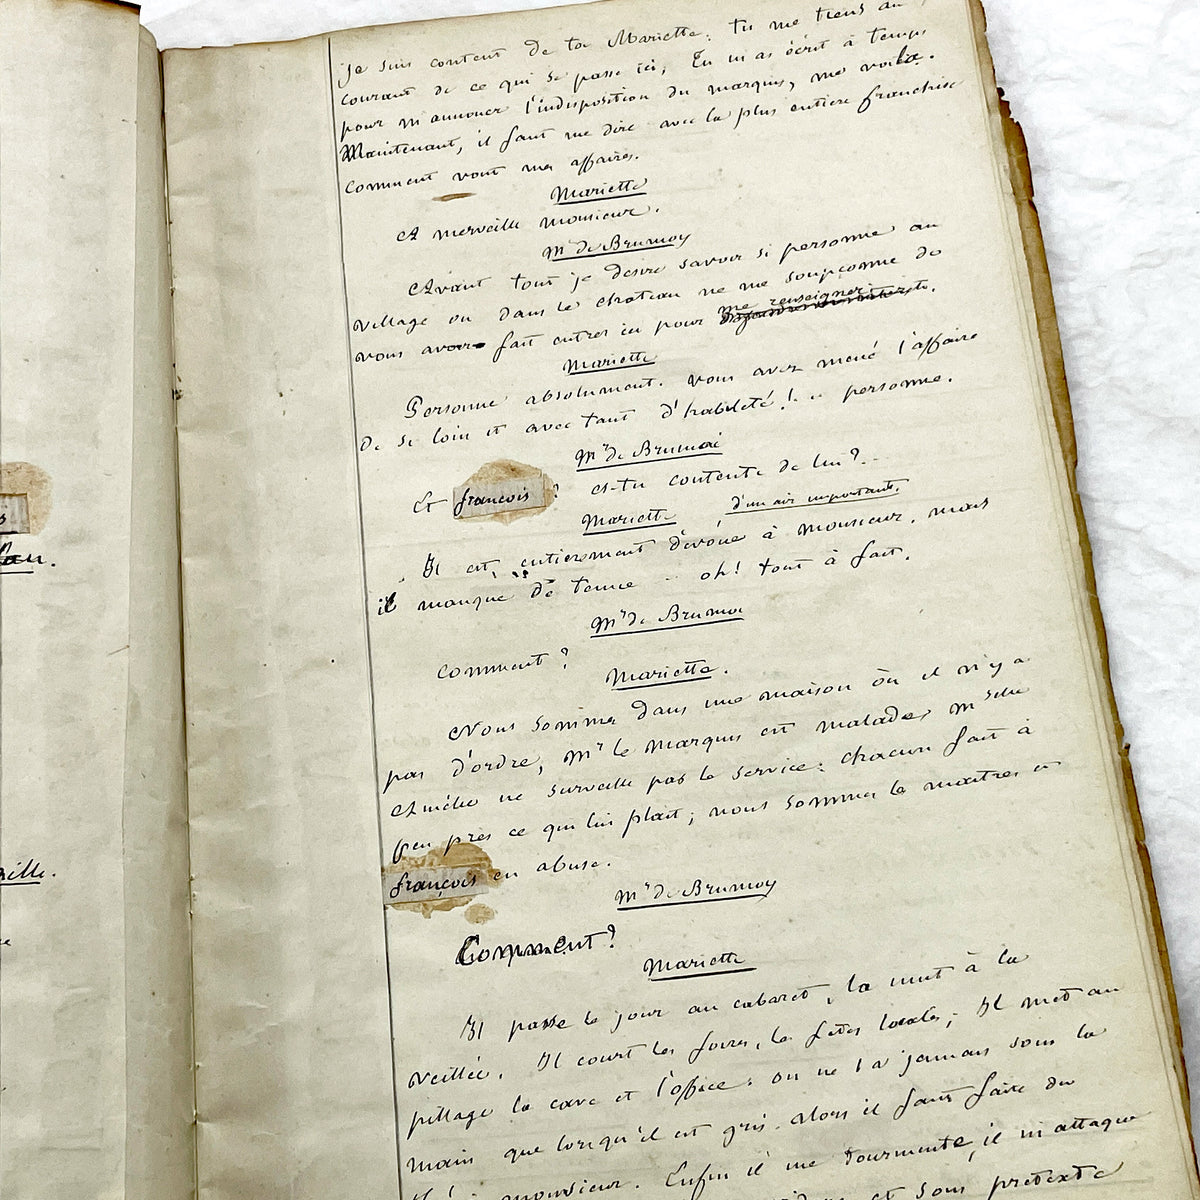 s
lan.
rille.
je suis content de toi Mariette. Tu me tiens au
courant de ce qui se passe ici, Tu m'as écrit à temps
pour m'annoncer l'indisposition du marquis, me voilà.
Maintenant, il faut me dire avec la plus entiere franchise
comment vont mes affaires.
Mariette
A merveille monsieur.
Mr de Brumoy
Avant tout je desire savoir si personne au
village ou dans le chateau ne me soupçonne de
vous avoir fait entrer ici pour me renseigner
Mariette
Personne absolument. Vous avez mené l'affaire
de si loin et avec tant d'habileté! .. personne.
Mr de Brumoi
Et françois ? es-tu contente de lui ?..
Mariette d'un air important.
Il est entierement dévoué à monsieur, mais
il manque de tenue .. oh! tout à fait.
Mr de Brumoi
Comment ?
Mariette.
Nous sommes dans une maison où il n'y a
pas d'ordre, Mr le marquis est malade, Mselle
Amélie ne surveille pas le service: chacun fait à
peu près ce qui lui plait; nous sommes les maitres et
françois en abuse.
Mr de Brumoy
Comment ?
Mariette
Il passe le jour au cabaret, la nuit à la
veillée. Il court les foires, les fêtes locales; Il met au
pillage la cave et l'office: on ne l'a jamais sous la
main que lorsqu'il est gris. Alors il faut faire du
monsieur. Enfin il me tourmente, il m'attaque
et sous pretexte